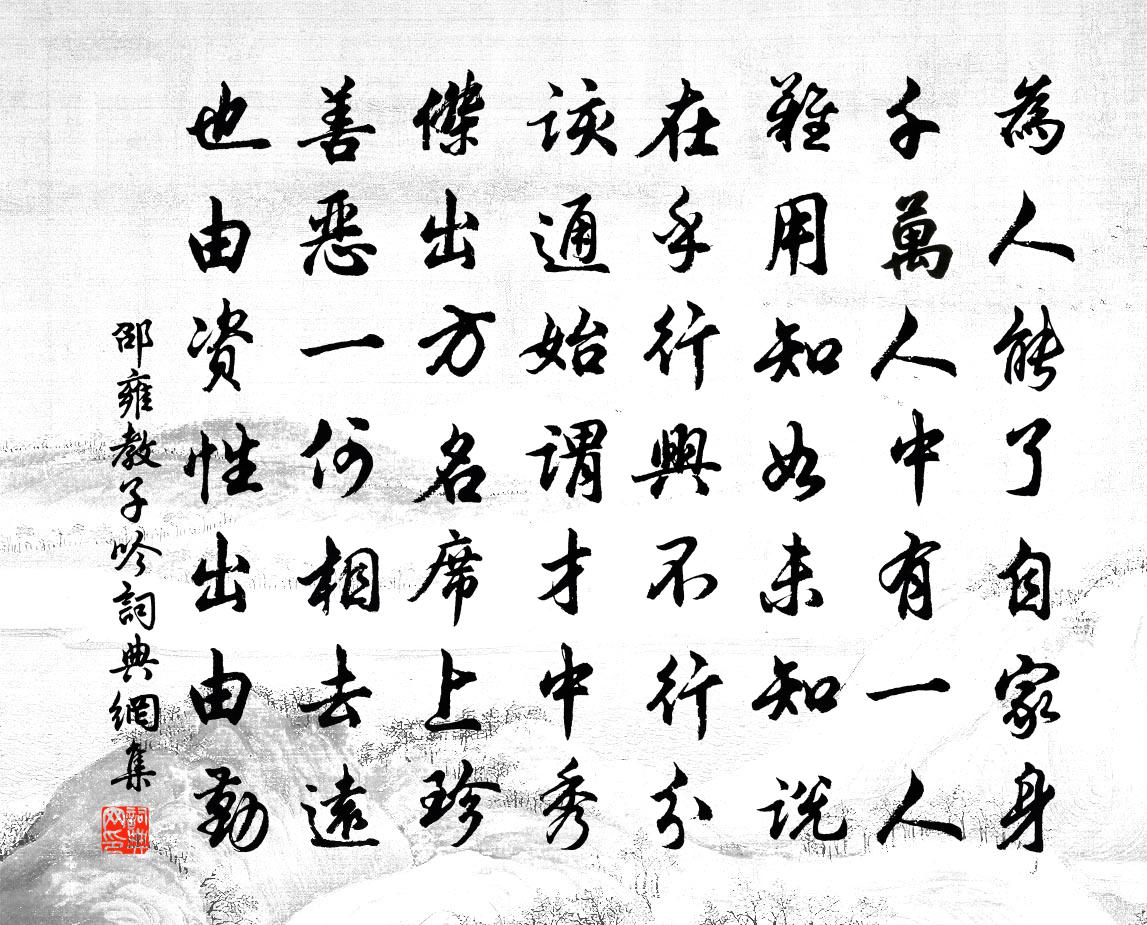 為人能了自家身
千萬人中有一人
雖用知如未知說
在乎行與不行分
該通始謂才中秀
傑出方名席上珍
善惡一何相去遠
也由資性出由勤
邵雍教子吟詞典網集